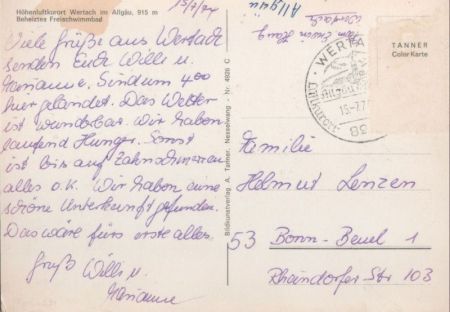 Höhenluftkurort Wertach im Allgäu, 915 m
Beheiztes Freischwimmbad
15/7/74
Viele Grüße aus Wertach
senden Euch Willi u.
Marianne. Sind um 400
hier gelandet. Das Wetter
ist wunderbar. Wir haben
laufend Hunger. Sonst
ist bis auf Zahnschmerzen
alles o.K. Wir haben eine
schöne Unterkunft gefunden.
Das wäre fürs erste alles.
Gruß Willi u.
Marianne
Bildkunstverlag A. Tanner, Nesselwang - Nr. 4926 C
Allgäu
Wertach
TANNER
Color Karte
WERTA
Luftkurort
Familie
Helmut Lenzen
53 Bonn-Beuel 1
Rheindorfer Str 103